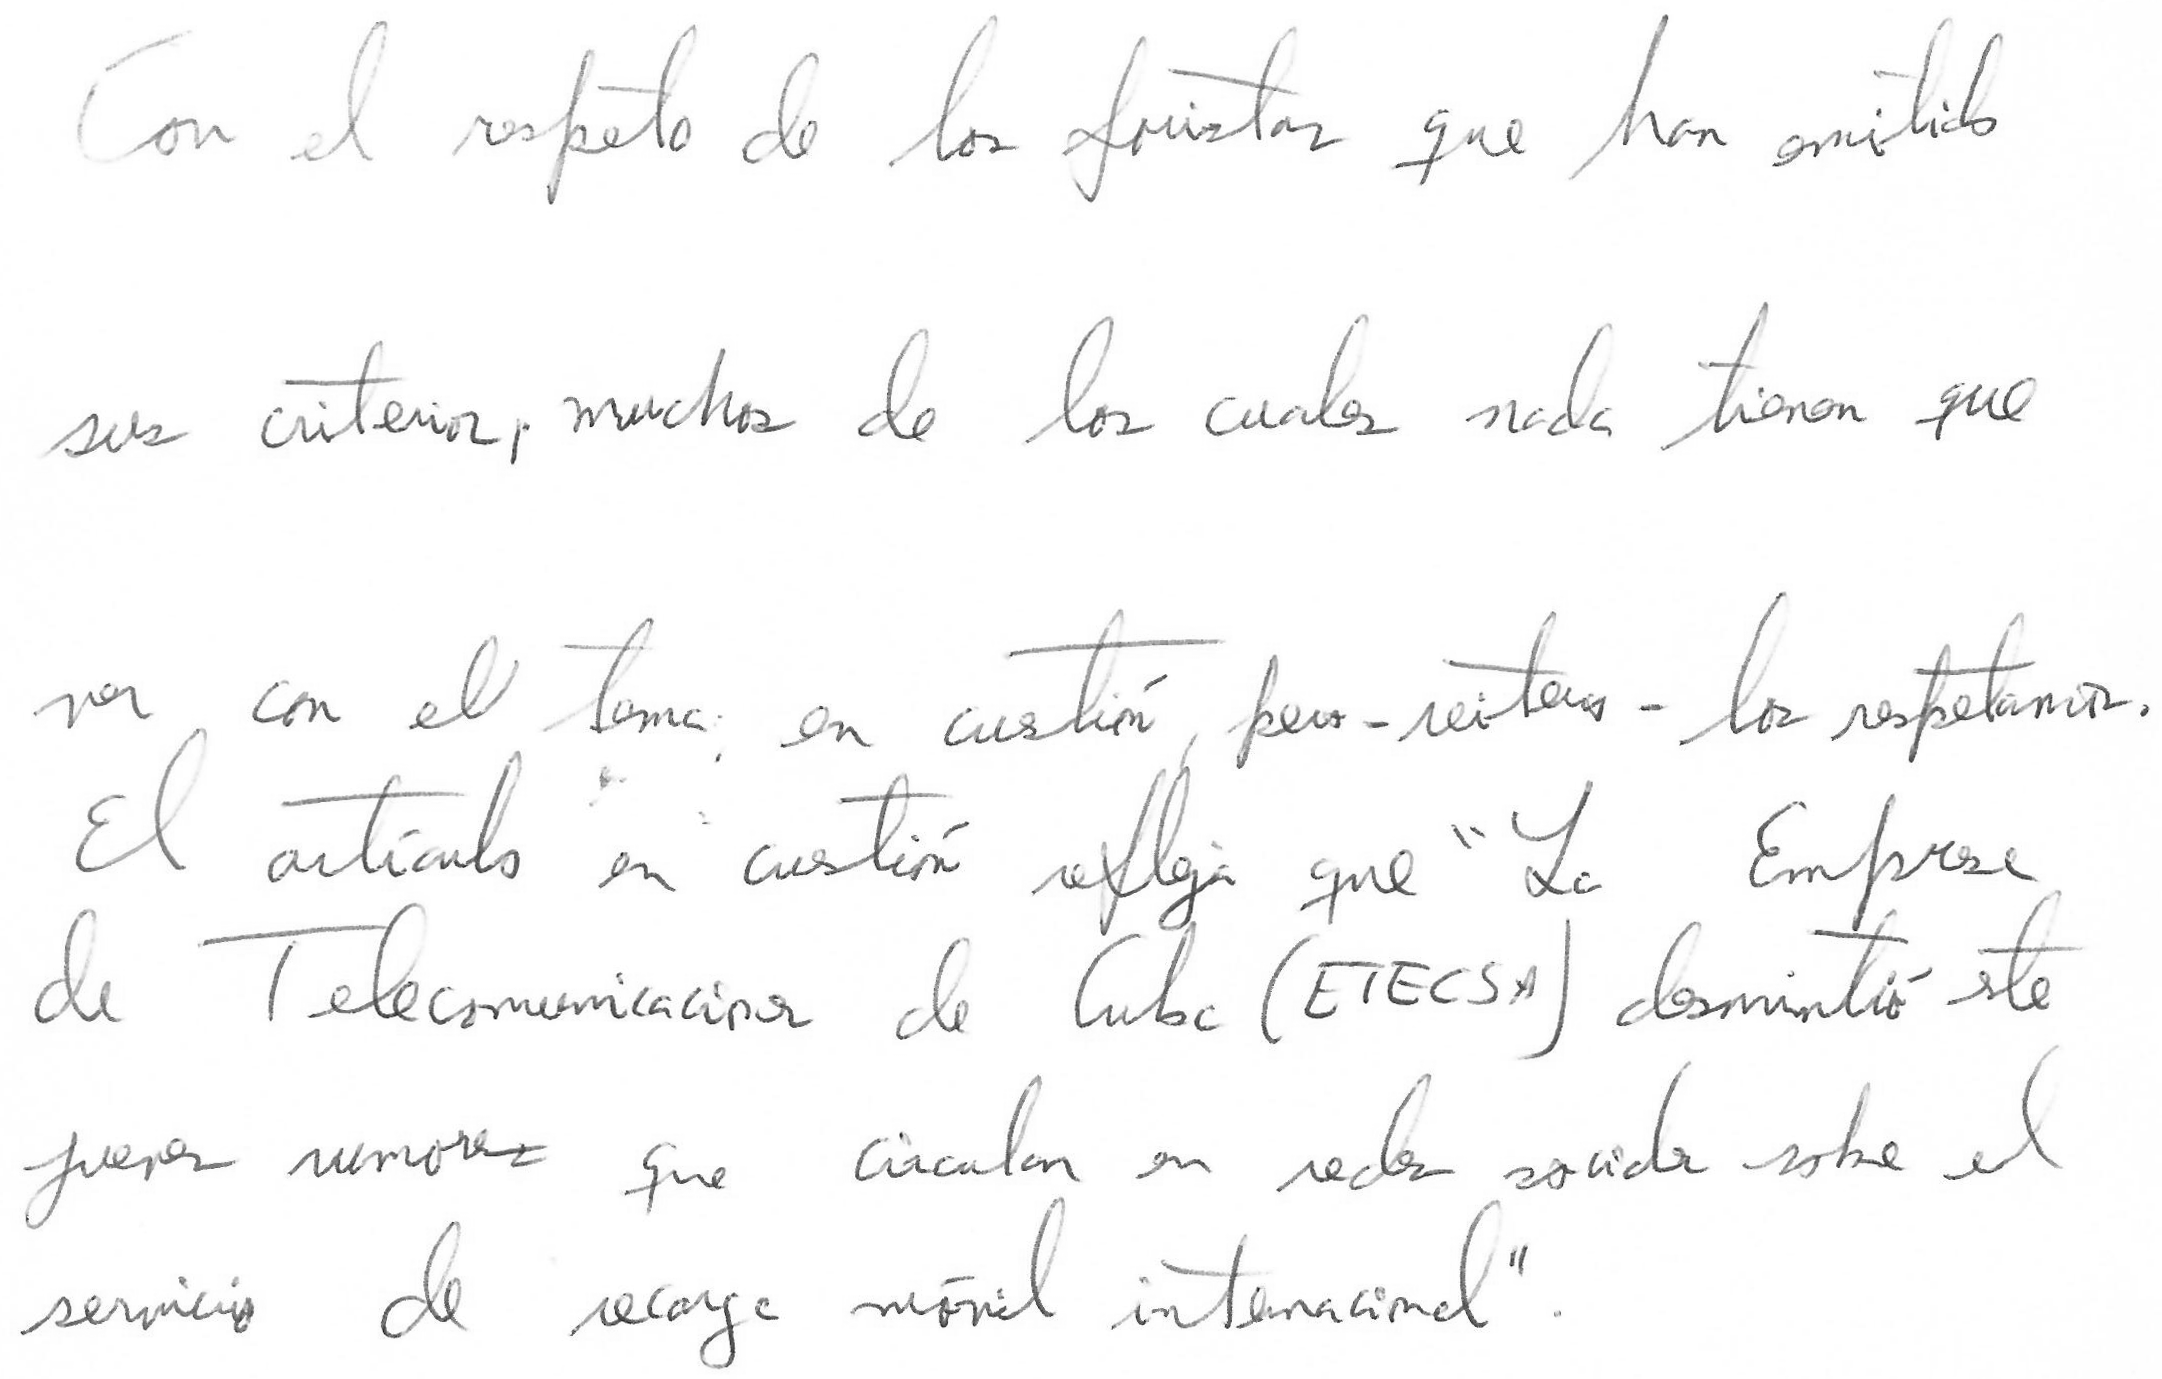 Con el respeto de los foristas que han emitido
sus criterios, muchos de los cuales nada tienen que
ver con el tema en cuestión, pero - reitero - los respetamos.
El artículo en cuestión refleja que "La Empresa
de Telecomunicaciones de Cuba (ETECSA) desmintió este
jueves rumores que circulan en redes sociales sobre el
servicio de recarga móvil internacional".